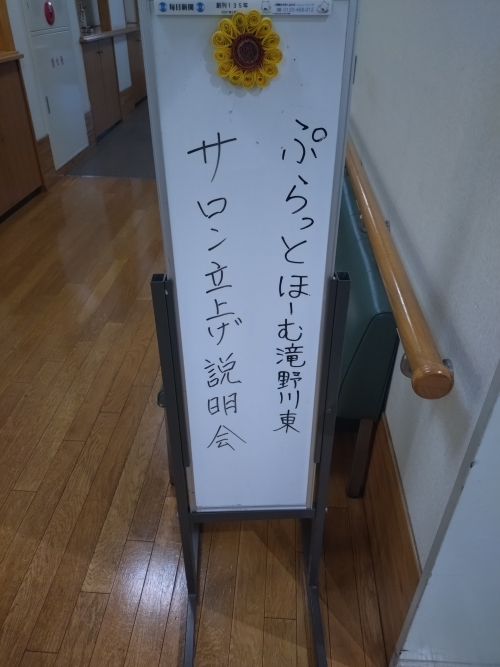 毎日新聞
創刊135年
ぷらっとほーむ滝野川東
サロン立上げ説明会